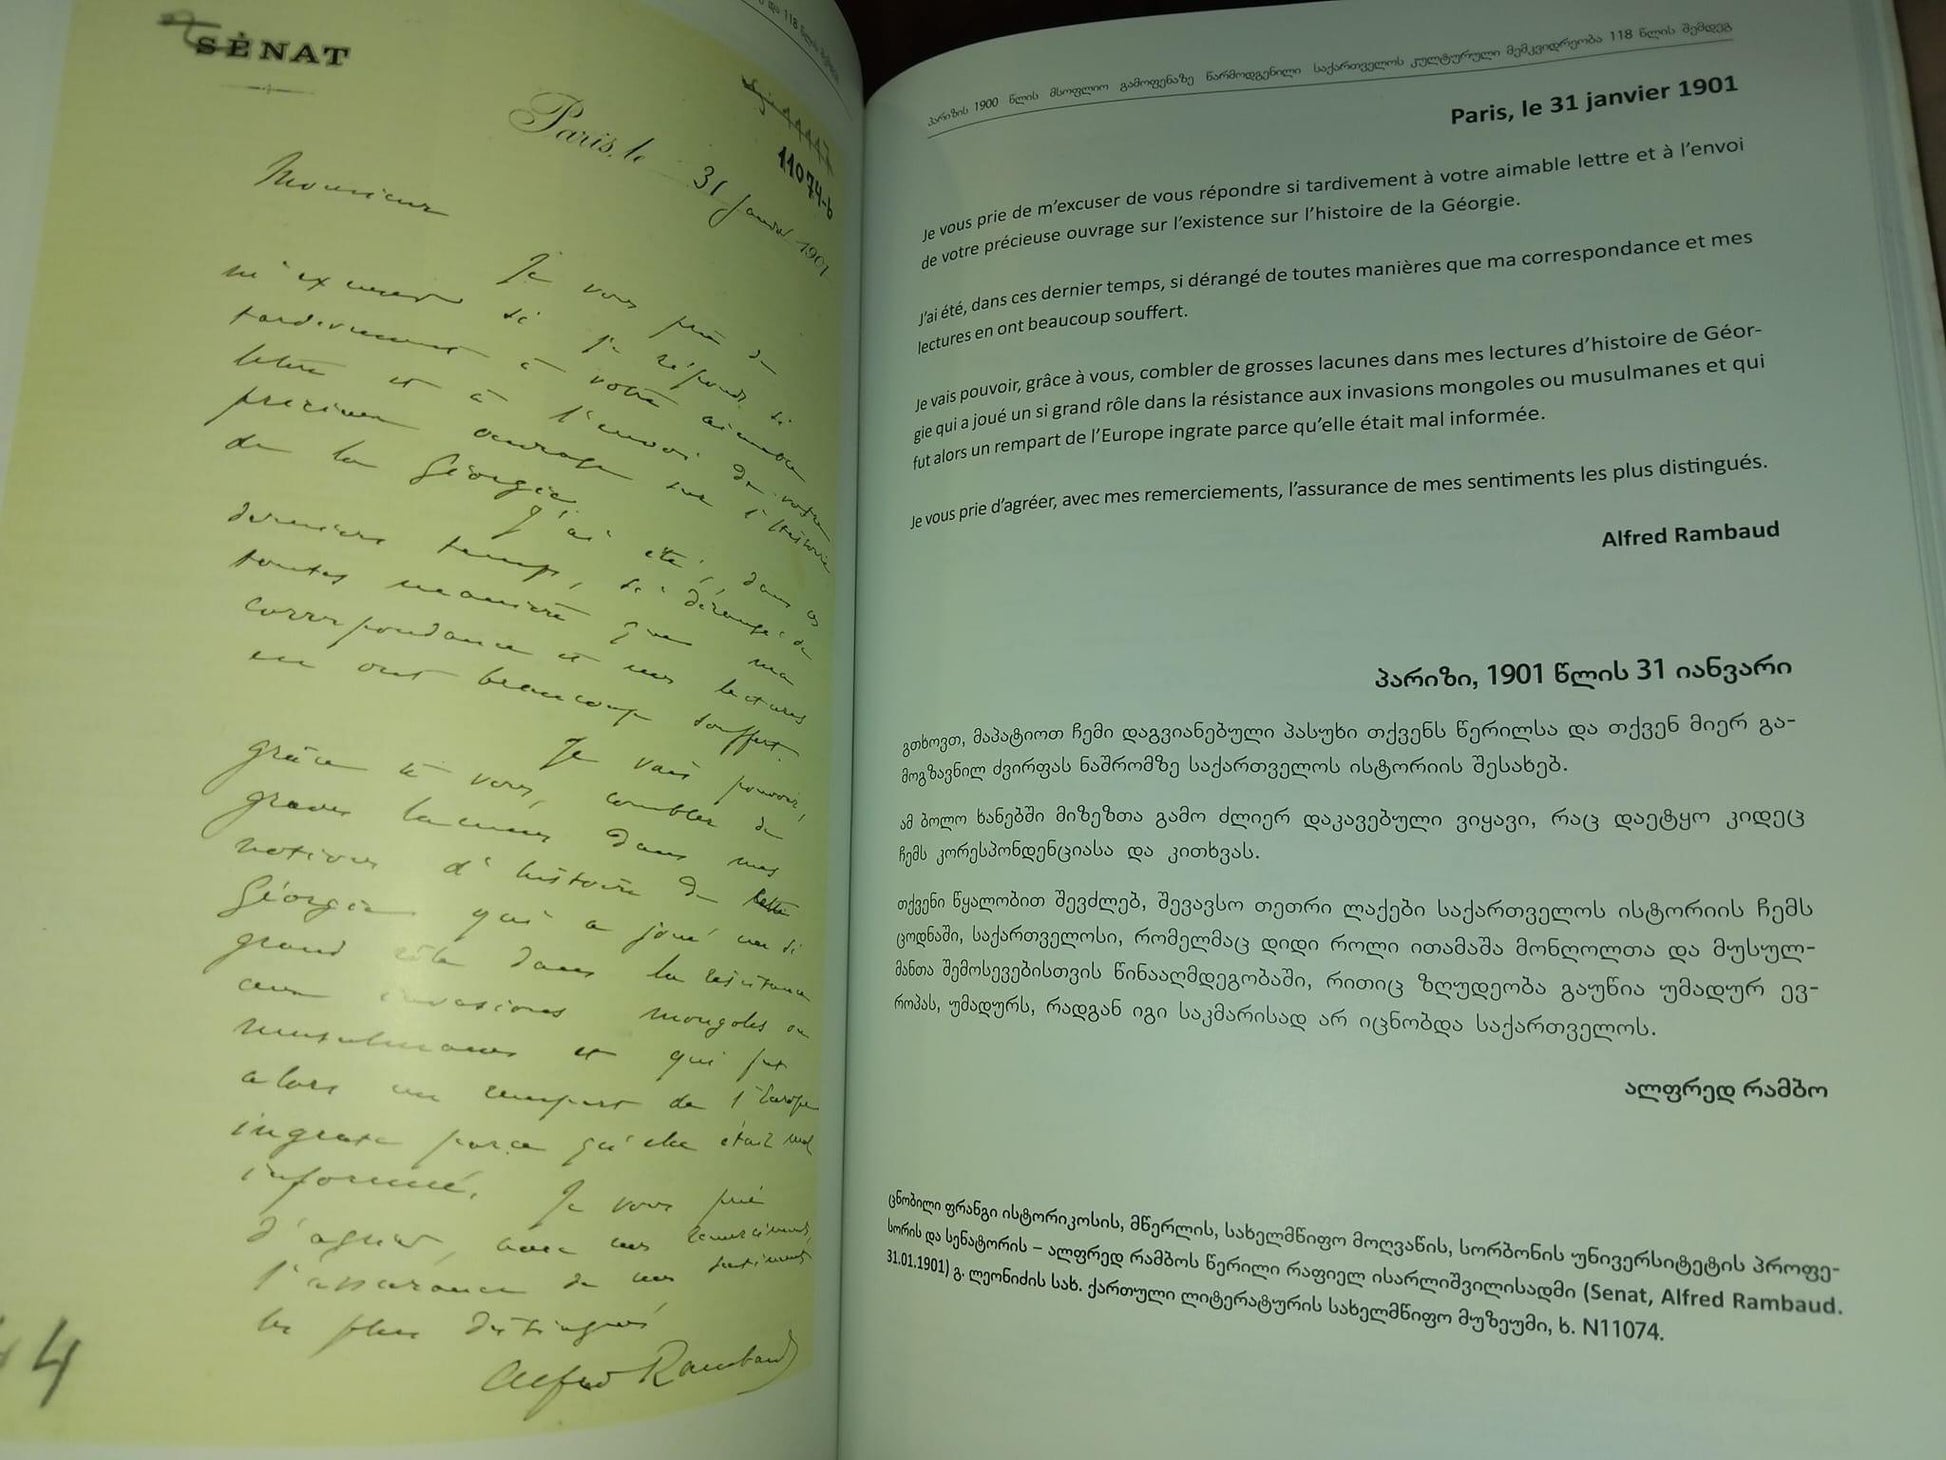 SÉNAT
Paris, le 31 janvier 1901
11074-b
Monsieur
Je vous prie de
m'excuser si je réponds si
tardivement à votre aimable
lettre et à l'envoi de votre
précieux ouvrage sur l'histoire
de la Géorgie.
J'ai été, dans ces
derniers temps, si dérangé de
toutes manières que ma
correspondance et mes lectures
en ont beaucoup souffert.
Je vais pouvoir,
grâce à vous, combler de
graves lacunes dans mes
notions d'histoire de cette
Géorgie qui a joué un si
grand rôle dans la résistance
aux invasions mongoles ou
musulmanes et qui fut
alors un rempart de l'Europe
ingrate parce qu'elle était mal
informée. Je vous prie
d'agréer, avec mes remerciements,
l'assurance de mes sentiments
les plus distingués
Alfred Rambaud
4
118 წლის შემდეგ
პარიზის 1900 წლის მსოფლიო გამოფენაზე წარმოდგენილი საქართველოს კულტურული მემკვიდრეობა 118 წლის შემდეგ
Paris, le 31 janvier 1901
Je vous prie de m'excuser de vous répondre si tardivement à votre aimable lettre et à l'envoi
de votre précieuse ouvrage sur l'existence sur l'histoire de la Géorgie.
J'ai été, dans ces dernier temps, si dérangé de toutes manières que ma correspondance et mes
lectures en ont beaucoup souffert.
Je vais pouvoir, grâce à vous, combler de grosses lacunes dans mes lectures d'histoire de Géor-
gie qui a joué un si grand rôle dans la résistance aux invasions mongoles ou musulmanes et qui
fut alors un rempart de l'Europe ingrate parce qu'elle était mal informée.
Je vous prie d'agréer, avec mes remerciements, l'assurance de mes sentiments les plus distingués.
Alfred Rambaud
პარიზი, 1901 წლის 31 იანვარი
გთხოვთ, მაპატიოთ ჩემი დაგვიანებული პასუხი თქვენს წერილსა და თქვენ მიერ გა-
მოგზავნილ ძვირფას ნაშრომზე საქართველოს ისტორიის შესახებ.
ამ ბოლო ხანებში მიზეზთა გამო ძლიერ დაკავებული ვიყავი, რაც დაეტყო კიდეც
ჩემს კორესპონდენციასა და კითხვას.
თქვენი წყალობით შევძლებ, შევავსო თეთრი ლაქები საქართველოს ისტორიის ჩემს
ცოდნაში, საქართველოსი, რომელმაც დიდი როლი ითამაშა მონღოლთა და მუსულ-
მანთა შემოსევებისთვის წინააღმდეგობაში, რითიც ზღუდეობა გაუწია უმადურ ევ-
როპას, უმადურს, რადგან იგი საკმარისად არ იცნობდა საქართველოს.
ალფრედ რამბო
ცნობილი ფრანგი ისტორიკოსის, მწერლის, სახელმწიფო მოღვაწის, სორბონის უნივერსიტეტის პროფე-
სორის და სენატორის – ალფრედ რამბოს წერილი რაფიელ ისარლიშვილისადმი (Senat, Alfred Rambaud.
31.01.1901) გ. ლეონიძის სახ. ქართული ლიტერატურის სახელმწიფო მუზეუმი, ხ. N11074.